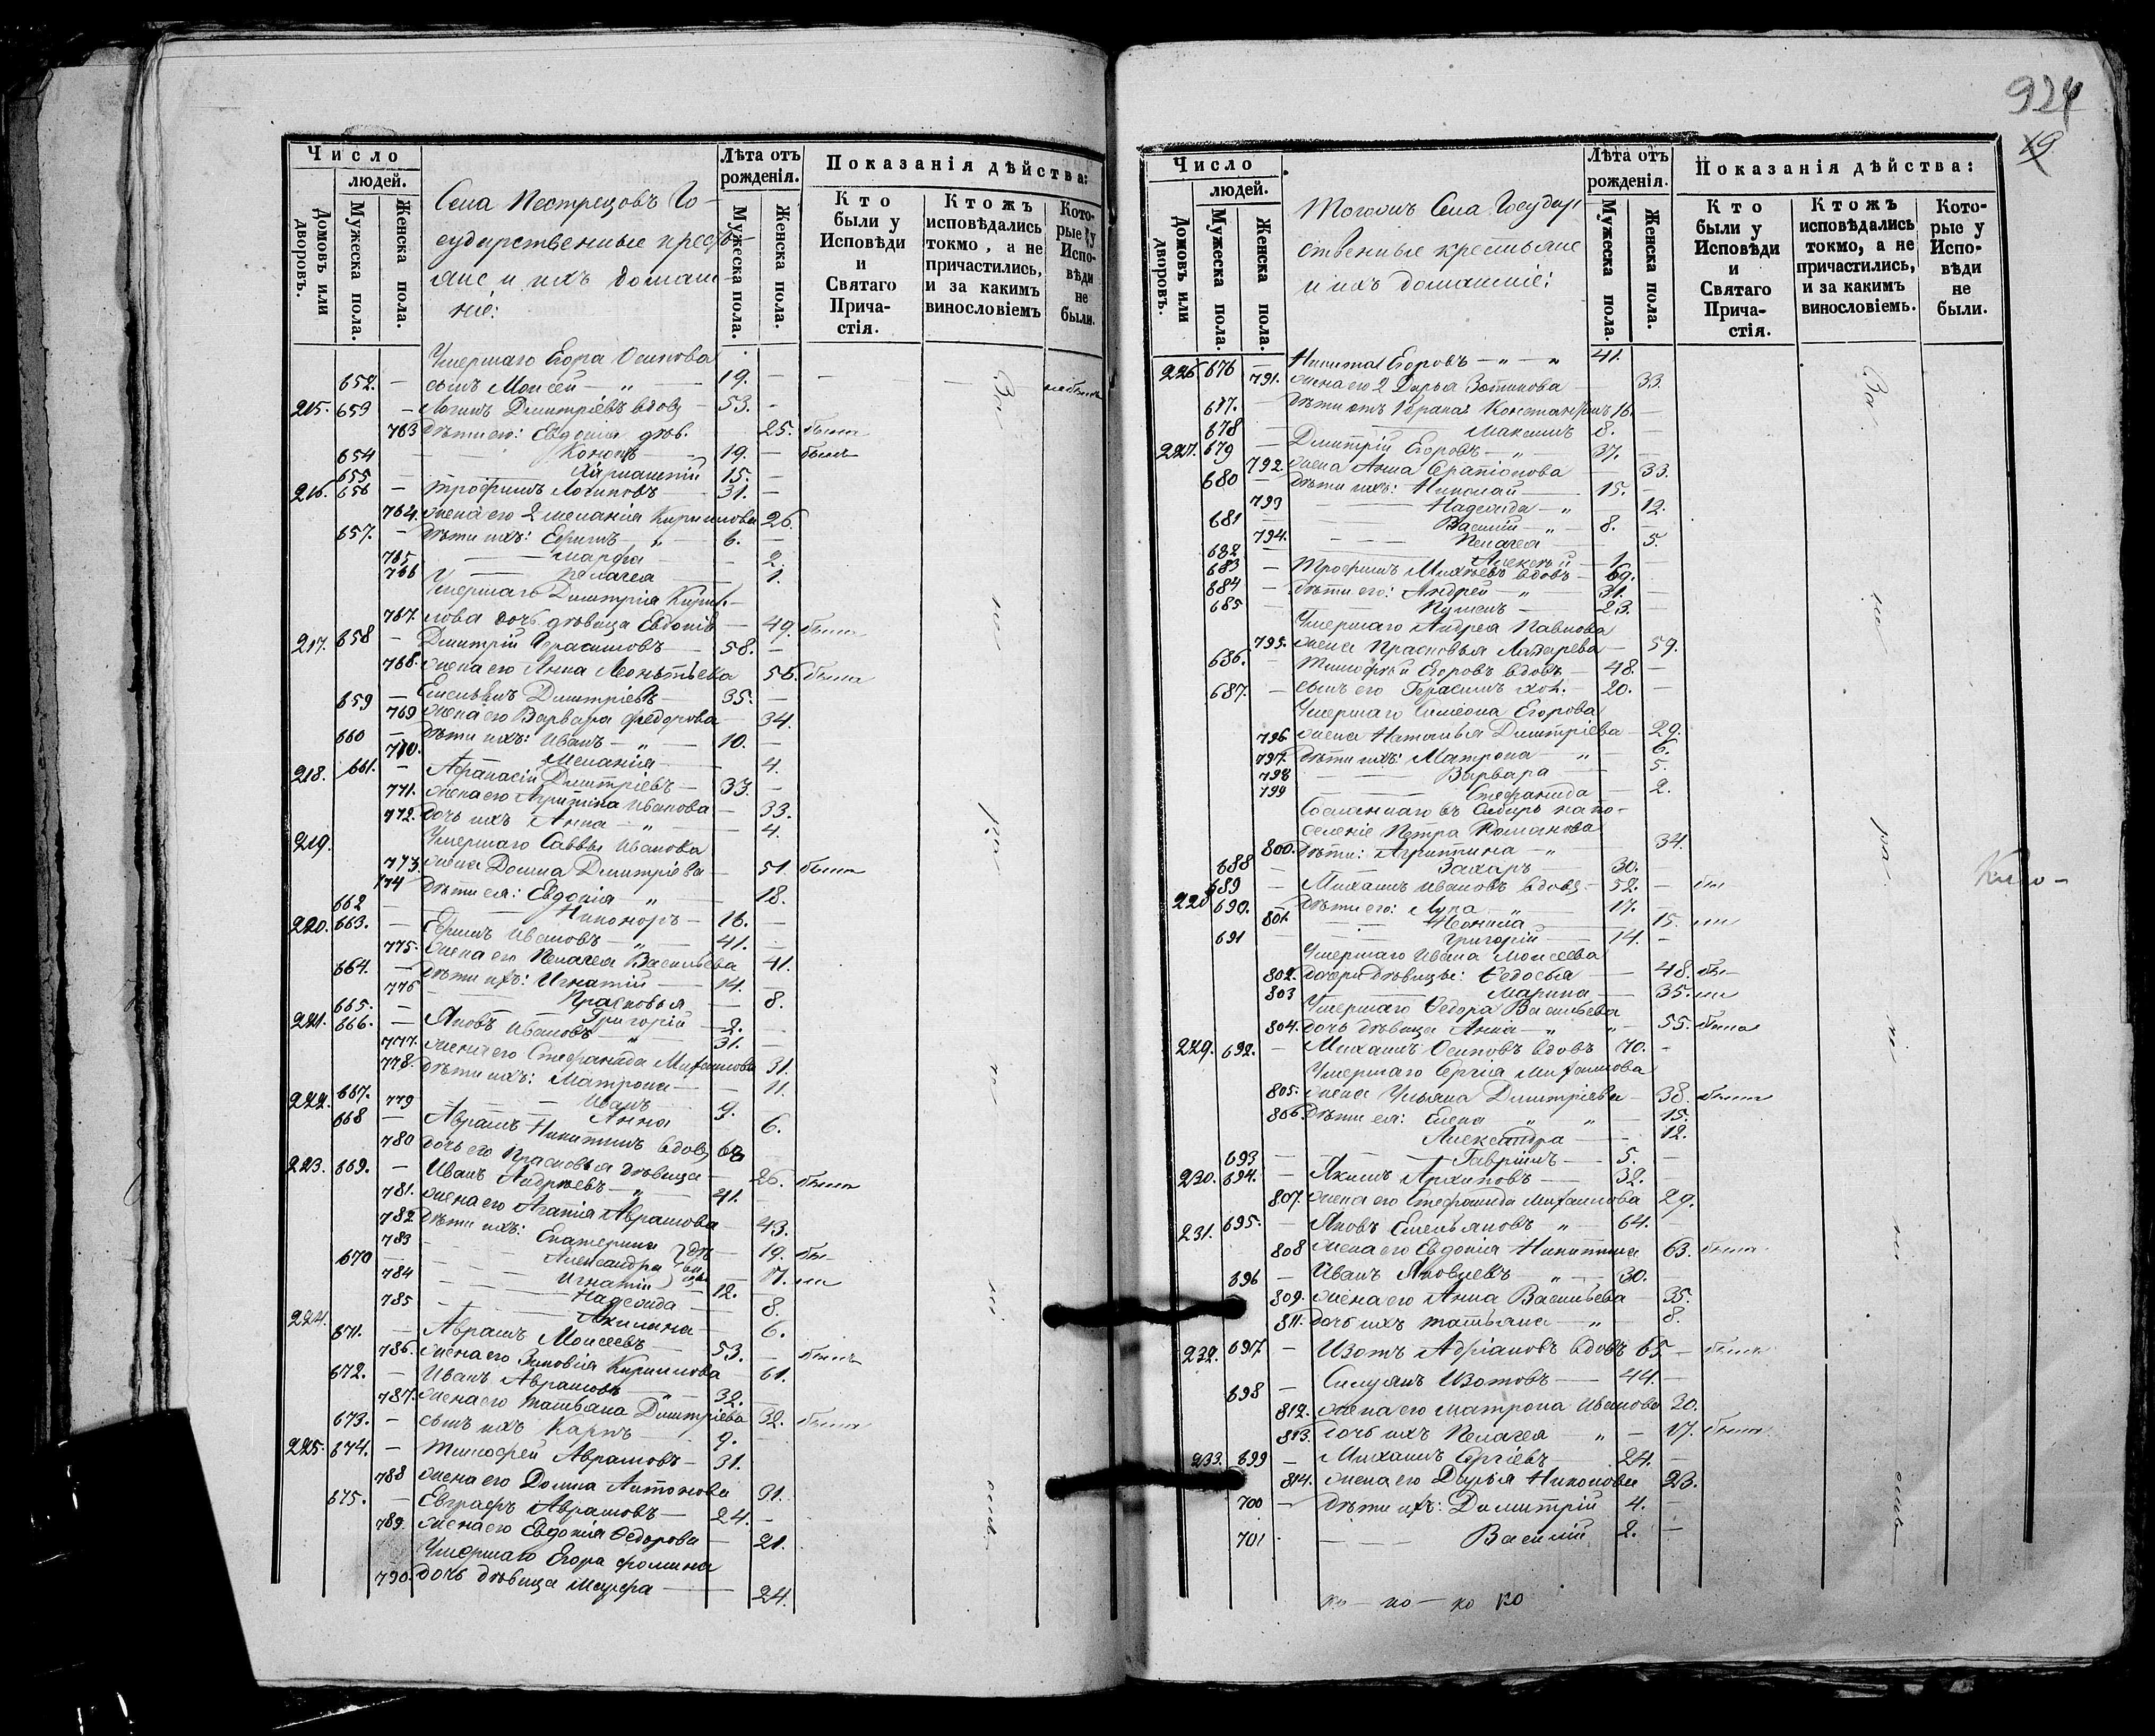 Число
людей.
Домовъ или дворовъ.
Мужеска пола.
Женска пола.
Села Пестрецовъ Го-
сударственные кресть-
яне и ихъ домаш-
ніе:
Лѣта отъ рожденія.
Мужеска пола.
Женска пола.
Показанія дѣйства:
Кто были у Исповѣди и Святаго Прича-стія.
Ктожъ исповѣдались токмо, а не причастились, и за какимъ винословіемъ
Кото-рые у Испо-вѣди не были.
Умершаго Егора Осипова
652. — сынъ Моисей — " — 19. — — — не былъ
215. 653 — Логинъ Дмитріевъ вдовъ — 53. —
763 Дѣти его: Евдокія дѣв. 25. была
654 — Кононъ — 19. — былъ
655 — 15. —
216. 656 — Трофимъ Логиновъ — 31. —
764. жена его 2 Меланія Кириллова 26.
657. — Дѣти ихъ: Ефимъ — " — 6. —
765 — Марфа — 2.
766 — Пелагея — 1.
Умершаго Дмитрія Кирил-
767. лова дочь дѣвица Евдокія — 49. была
217. 658 — Дмитрій Герасимовъ — 58. —
768. жена его Анна Леонтьева 56. была
659 — Емельянъ Дмитріевъ — 35. —
769 жена его Варвара Федорова — 34.
660 — Дѣти ихъ: Иванъ — " — 10. —
770. Меланія — 4.
218. 661. — Афанасій Дмитріевъ — 33. —
771. жена его Агрипина Иванова — 33.
772. дочь ихъ Анна — " — 4.
219. Умершаго Саввы Иванова
773. жена Домна Дмитріева — 51. была
774 Дѣти ея: Евдокія " — 18.
662 — Никоноръ — 16. —
220. 663. — Ефимъ Ивановъ — " — 41. —
775. жена его Пелагея Васильева 41.
664. — Дѣти ихъ: Игнатій — 14. —
776 — Прасковья — 8.
665. — Григорій — 2. —
221. 666. — Яковъ Ивановъ — " — 31. —
777. жена его Стефанида Михайлова 31.
778. Дѣти ихъ: Матрона — 11.
667. — Иванъ — 9.
779 — Анна — 6.
222. 668 — Аврамъ Никитинъ вдовъ 68
780 дочь его Прасковья дѣвица — 26. была
223. 669. — Иванъ Андреевъ — " — 41. —
781. жена его Агапія Аврамова — 43.
782 Дѣти ихъ: Екатерина — 19. бы
783 — Александра — 17. ли
670 — Игнатій — 12. —
784 — Надежда — 8.
785 — Акилина — 6.
224. 671. — Аврамъ Моисеевъ — 53. — былъ
786. жена его Зиновія Кириллова 61.
672. — Иванъ Аврамовъ — " — 32. —
787. жена его Татьяна Дмитріева 32. была
673. — сынъ ихъ Карпъ — 9. —
225. 674. — Тимофей Аврамовъ — 31.
788 жена его Домна Антонова 31.
675. — Евграфъ Аврамовъ — 24. —
789. жена его Евдокія Ѳедорова — 21.
Умершаго Егора Фомина
790. дочь дѣвица Марфа — 24.
924
19
Число
людей.
Домовъ или дворовъ.
Мужеска пола.
Женска пола.
Тогожъ Села Государ-
ственные крестьяне
и ихъ домашніе:
Лѣта отъ рожденія.
Мужеска пола.
Женска пола.
Показанія дѣйства:
Кто были у Исповѣди и Святаго Прича-стія.
Ктожъ исповѣдались токмо, а не причастились, и за какимъ винословіемъ.
Кото-рые у Испо-вѣди не были.
226. 676 — Никита Егоровъ — " — " 41.
791. жена его 2 Дарья Зотикова — 33.
677. — Дѣти отъ 1 брака: Константинъ 16. —
678 — Максимъ 8. —
227. 679 — Дмитрій Егоровъ — " — 37. —
792. жена Анна Серапіонова — 33.
680 — Дѣти ихъ: Николай — 15. —
793 — Надежда — " — 12.
681 — Василій — " — 8. —
794. — Пелагея — 5.
682 — Алексѣй — 1. —
683 — Трофимъ Михѣевъ вдовъ — 69. —
684 — Дѣти его: Андрей — " — 31. —
685 — 23. —
Умершаго Андрея Павлова
795. жена Прасковья Лазарева — 59.
686. — Тимофей Егоровъ вдовъ — 48. —
687. — сынъ его Герасимъ хол. — 20. —
Умершаго Симеона Егорова
796 жена Наталья Дмитріева — 29.
797. Дѣти ихъ: Матрона — " — 6.
798 — Варвара — 5.
799 — Стефанида — 2.
Сосланнаго въ Сибирь на по-
селеніе Петра Романова
800. Дѣти: Агрипина — " — 34.
688 — Захаръ — 30.
228 689 — Михаилъ Ивановъ вдовъ — 52. — бы
690. — Дѣти его: Лука — " — 17. —
801. — Неонила — 15. ли
691 — Григорій — 14. —
Умершаго Ивана Моисеева
802. дочери дѣвицы: Ѳедосья — 48. бы—
803 — Марина — 35. ли
Умершаго Ѳедора Васильева
804. дочь дѣвица Анна — " — " 55. была
229. 692. — Михаилъ Осиповъ вдовъ 70. —
Умершаго Сергія Михайлова
805. жена Ульяна Дмитріева — 38. была
806. Дѣти ея: Елена " — " — 15.
Александра — 12.
693 — Гавріилъ — 5. —
230. 694. — Якимъ Архиповъ — 32. —
807. жена его Стефанида Михайлова 29.
231. 695. — Яковъ Емельяновъ " — 64. —
808 жена его Евдокія Никитина 63. была
696 — Иванъ Яковлевъ — " — 30.
809. жена его Анна Васильева — 35.
811. дочь ихъ Татьяна — " — 8.
232. 697 — Изотъ Адріановъ вдовъ 65 — былъ
698 — Силуянъ Изотовъ — 44. —
812. жена его Матрона Иванова 20.
813. дочь ихъ Пелагея " — 17. была
233. 699 — Михаилъ Сергіевъ — 24. —
814. жена его Дарья Никонова 23.
700 — Дѣти ихъ: Димитрій 4. —
701 — Василій. 2. —